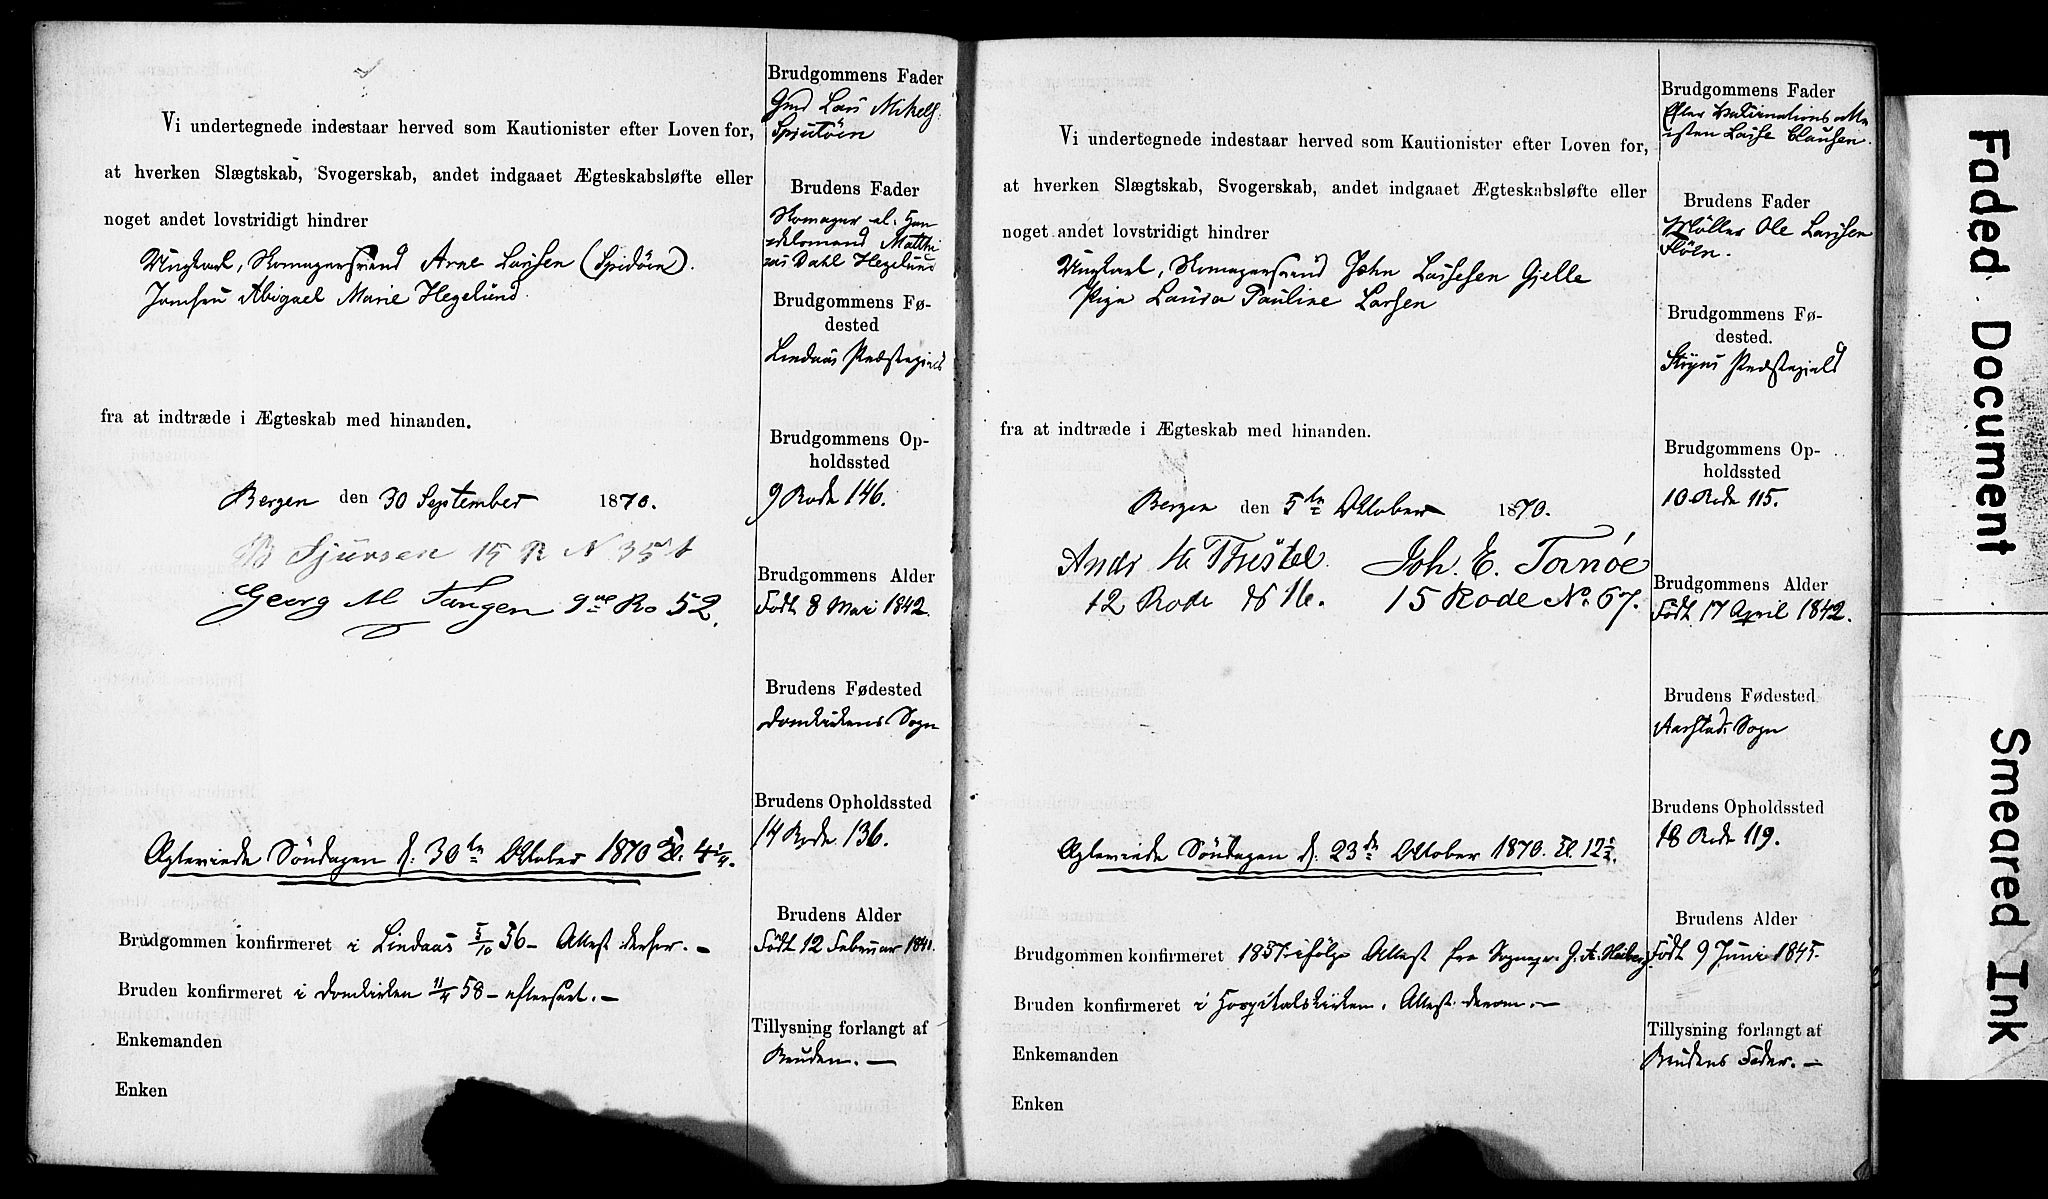 Vi undertegnede indestaar herved som Kautionister efter Loven for,
at hverken Slægtskab, Svogerskab, andet indgaaet Ægteskabsløfte eller
noget andet lovstridigt hindrer
Ungkarl, Skomagersvend Arne Larssen (Spidöen).
Jomfru Abigael Marie Hegelund
fra at indtræde i Ægteskab med hinanden.
Bergen den 30 September 1870.
Sjursen 15 R N 35
Georg M Tangen 9de Ro 52.
Ægteviede Söndagen d. 30te Oktober 1870 Kl. 4
Brudgommen konfirmeret i Lindaas 5/10 56 - Attest derfor. -
Bruden konfirmeret i Domkirken 58 - efterseet. -
Enkemanden
Enken
Brudgommens Fader
Gmd Lars Mikels.
Brudens Fader
Skomager
Matthi
as Dahl Hegelund
Brudgommens Fø-
dested
Lindaas Præstegjeld
Brudgommens Op-
holdssted
9 Rode 146.
Brudgommens Alder
Födt 8 Mai 1842.
Brudens Fødested
Domkirkens Sogn
Brudens Opholdssted
14 Rode 136.
Brudens Alder
Födt 12 Februar
Tillysning forlangt af
Bruden. -
Vi undertegnede indestaar herved som Kautionister efter Loven for,
at hverken Slægtskab, Svogerskab, andet indgaaet Ægteskabsløfte eller
noget andet lovstridigt hindrer
Ungkarl, Skomagersvend John Lassesen Gjelle
Pige Laura Pauline Larsen
fra at indtræde i Ægteskab med hinanden.
Bergen den 5te Oktober 1870.
Joh. E. Tornöe
12 Rode N 16. 15 Rode No. 67.
Ægteviede Söndagen d. 23de Oktober 1870. Kl. 12½.
Brudgommen konfirmeret 1857 ifölge Attest fra Sognepr. J. A. Heiberg
Bruden konfirmeret i Hospitalskirken. Attest derom. -
Enkemanden
Enken
Brudgommens Fader
Efter Vaccinations atte
sten Lasse Clausen.
Brudens Fader
Möller Ole Larssen
Flöen.
Brudgommens Fø-
dested.
Stryns Præstegjeld
Brudgommens Op-
holdssted
10 Rode 115.
Brudgommens Alder
Födt 17 April 1842.
Brudens Fødested
Aarstad Sogn
Brudens Opholdssted
18 Rode 119.
Brudens Alder
Födt 9 Juni 1845.
Tillysning forlangt af
Brudens Fader. -
Faded Document
Smeared Ink